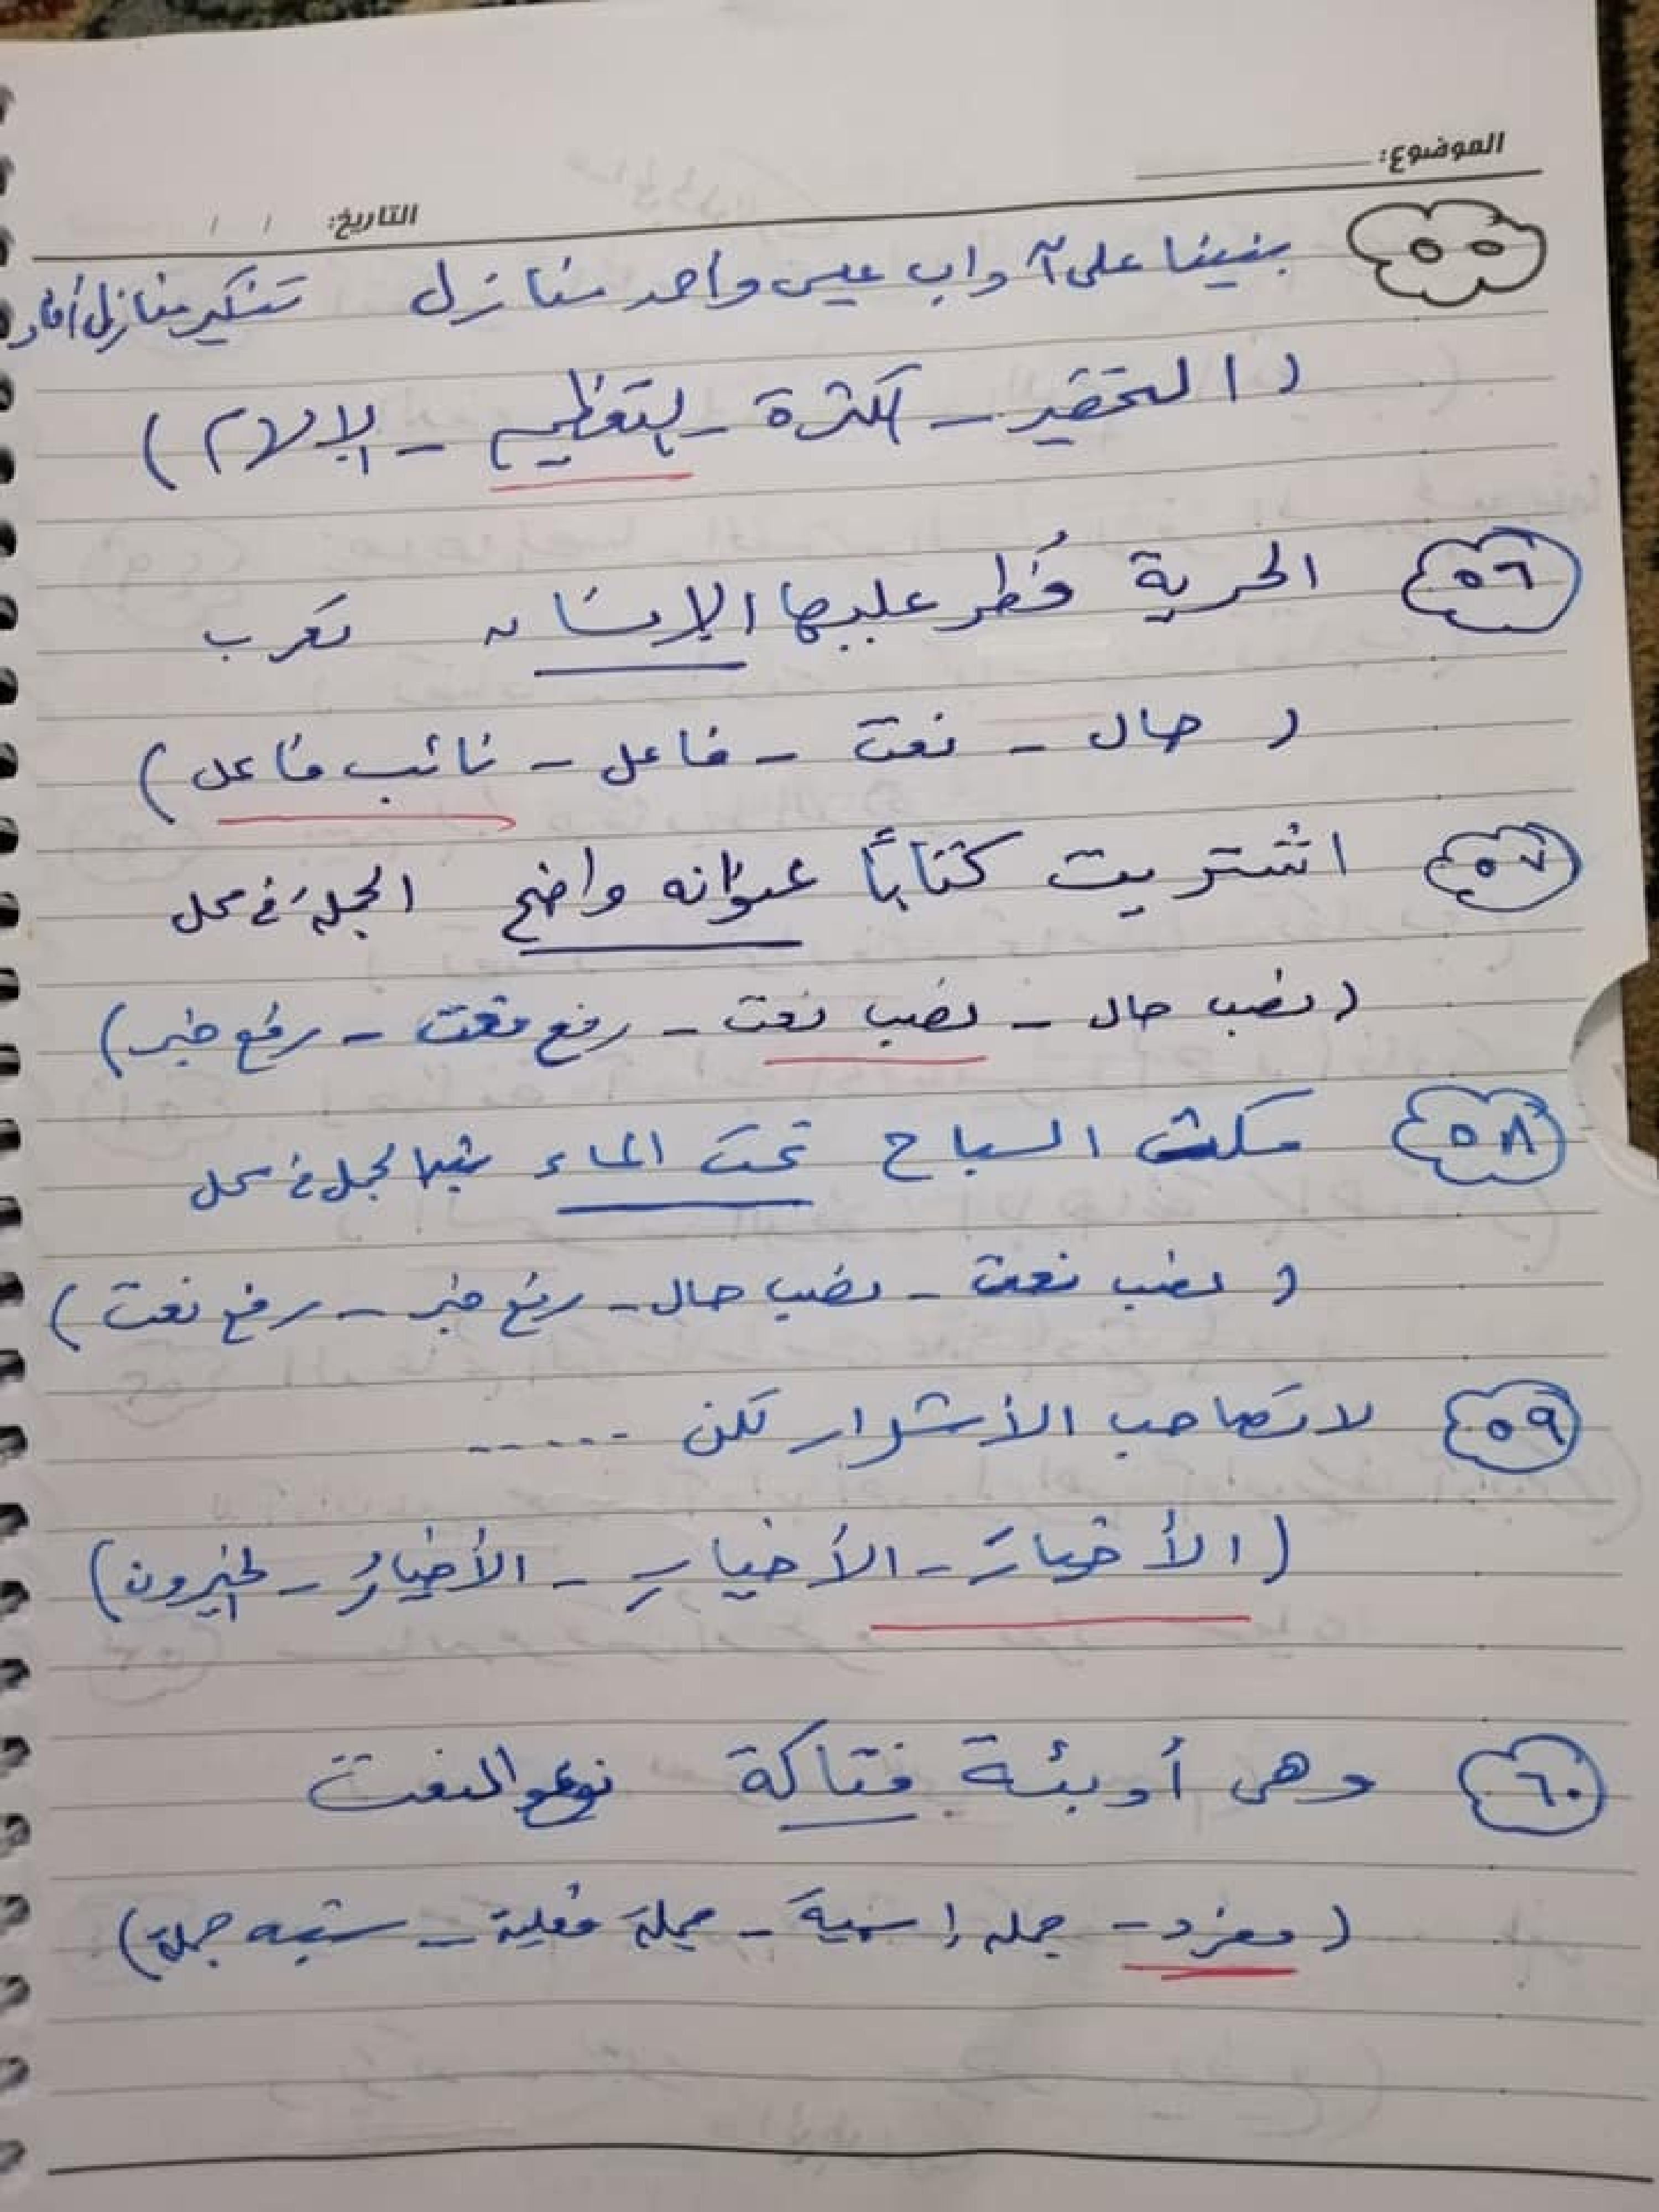 الموضوع:
التاريخ: / /
٥٥ بنينا على آداب عيسى وأحمد منازل تنكير منازل أفاد
( التحقير - الكثرة - التعظيم - الإبهام )
٥٦ الحرية فُطر عليها الإنسان تعرب
( حال - نعت - فاعل - نائب فاعل )
٥٧ اشتريت كتاباً عنوانه واضح الجملة فى محل
( نصب حال - نصب نعت - رفع نعت - رفع خبر )
٥٨ مكث السباح تحت الماء شبه الجملة فى محل
( نصب نعت - نصب حال - رفع خبر - رفع نعت )
٥٩ لا تصاحب الأشرار لكن ......
( الأخيارَ - الأخيارِ - الأخيارُ - الخيرون )
٦٠ وهى أوبئة فتاكة نوع النعت
( مفرد - جملة إسمية - جملة فعلية - شبه جملة )